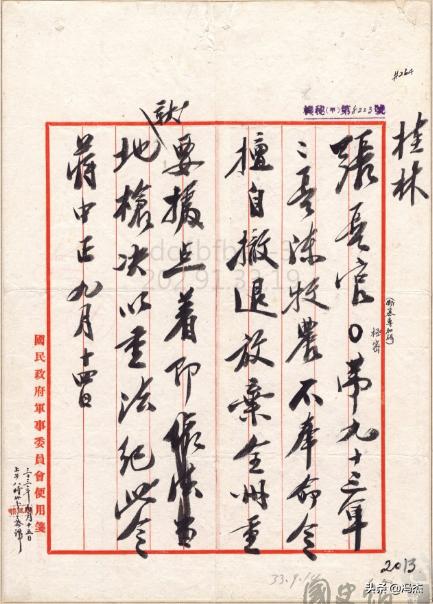 機秘(甲)第8223號
桂林
張長官〇第九十三軍
極密
〻長陳牧農不奉命令
擅自撤退放棄全州重
要據点着即依法
就
地槍決以重法紀此令
蔣中正九月十四日
國民政府軍事委員會便用箋
33.9.14
2013
國史館
头条@冯杰